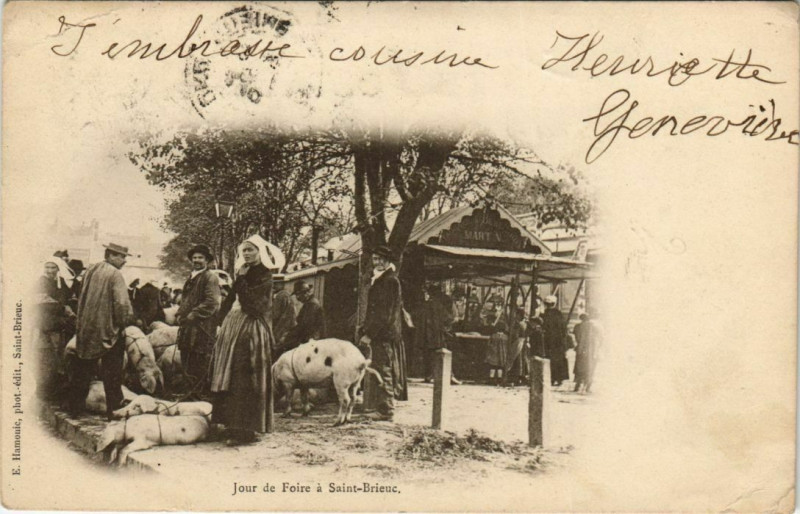 J'embrasse cousine Henriette
Geneviève
MARTIN
E. Hamonic, phot.-édit., Saint-Brieuc.
Jour de Foire à Saint-Brieuc.